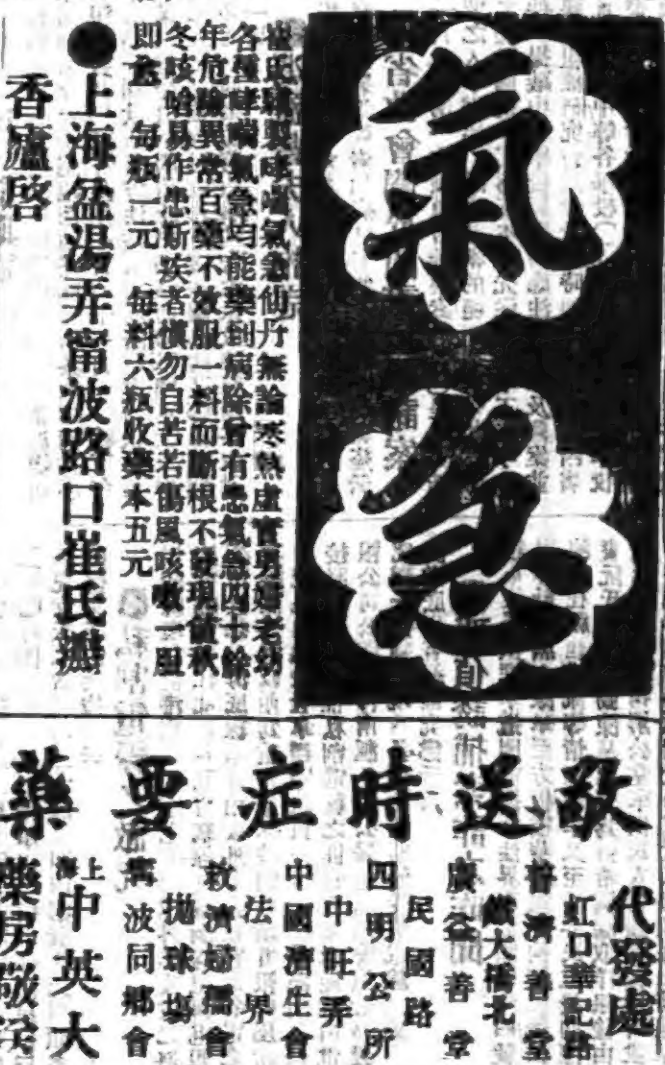 氣急
崔氏瓣製哮喘氣急仙丹無論寒熱虛實男婦老幼
各種哮喘氣急均能藥到病除曾有患氣急四十餘
年危險異常百藥不效服一料而斷根不發現值秋
冬咳嗆易作患斯疾者愼勿自苦若傷風咳嗽一服
即愈 每瓶一元 每料六瓶收藥本五元
●上海盆湯弄甯波路口崔氏瓣
香廬啓
敬送時症要藥
代發處
虹口華記路
普濟善堂
鐵大橋北
廣益善堂
民國路
四明公所
中旺弄
中國濟生會
法界
救濟婦孺會
拋球場
甯波同鄉會
上海中英大
藥房敬送